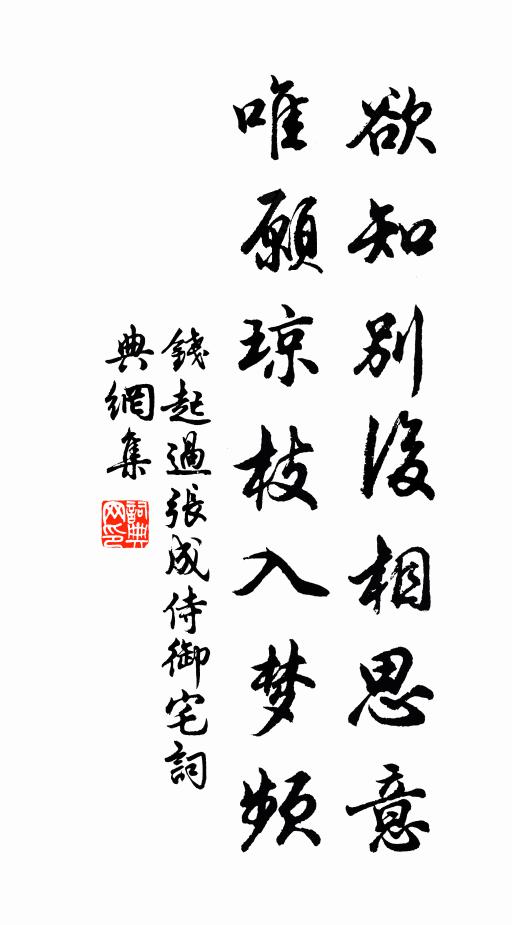 欲知別後相思意
唯願琼枝入梦頻
錢起過張成侍御宅詞
典網集
詞典网印